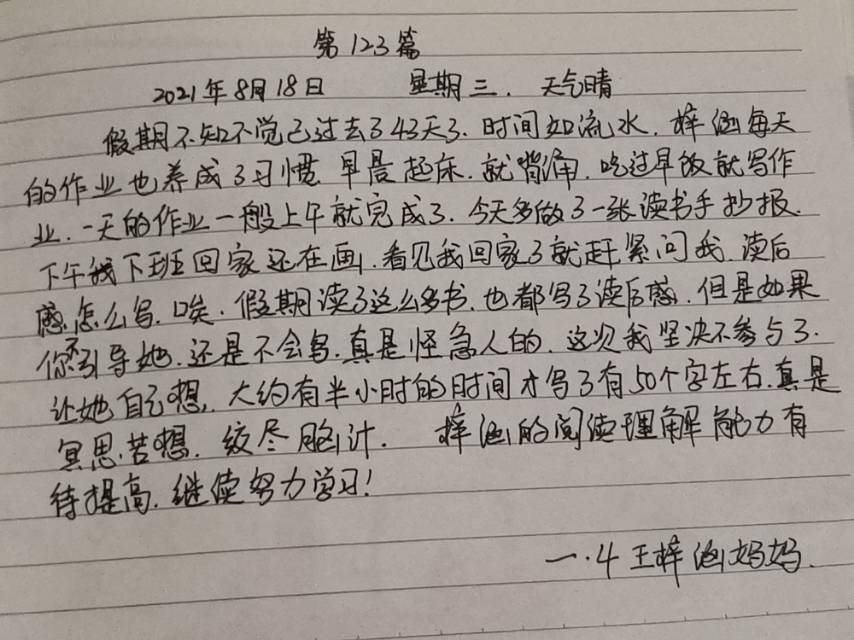 第123篇
2021年8月18日 星期三. 天气晴
假期不知不觉已过去了43天了. 时间如流水. 梓涵每天
的作业也养成了习惯 早晨起床. 就背诵. 吃过早饭就写作
业. 一天的作业一般上午就完成了. 今天多做了一张读书手抄报.
下午我下班回家还在画. 看见我回家了就赶紧问我. 读后
感怎么写. 唉. 假期读了这么多书. 也都写了读后感. 但是如果
你不引导她. 还是不会写. 真是怪急人的. 这次我坚决不参与了.
让她自己想. 大约有半小时的时间才写了有50个字左右. 真是
冥思苦想. 绞尽脑汁. 梓涵的阅读理解能力有
待提高. 继续努力学习!
一.4 王梓涵妈妈.